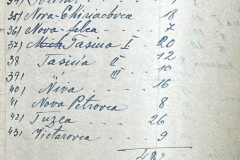 35) Nova-Chisinaovca 18
36) Nova felca 7
37) Tasina I 20
38 Tasina II 12
39) III 10
40) Niva 16
41 Nova Petrovca 8
42) Tuzla 26
43) Victarovca 9